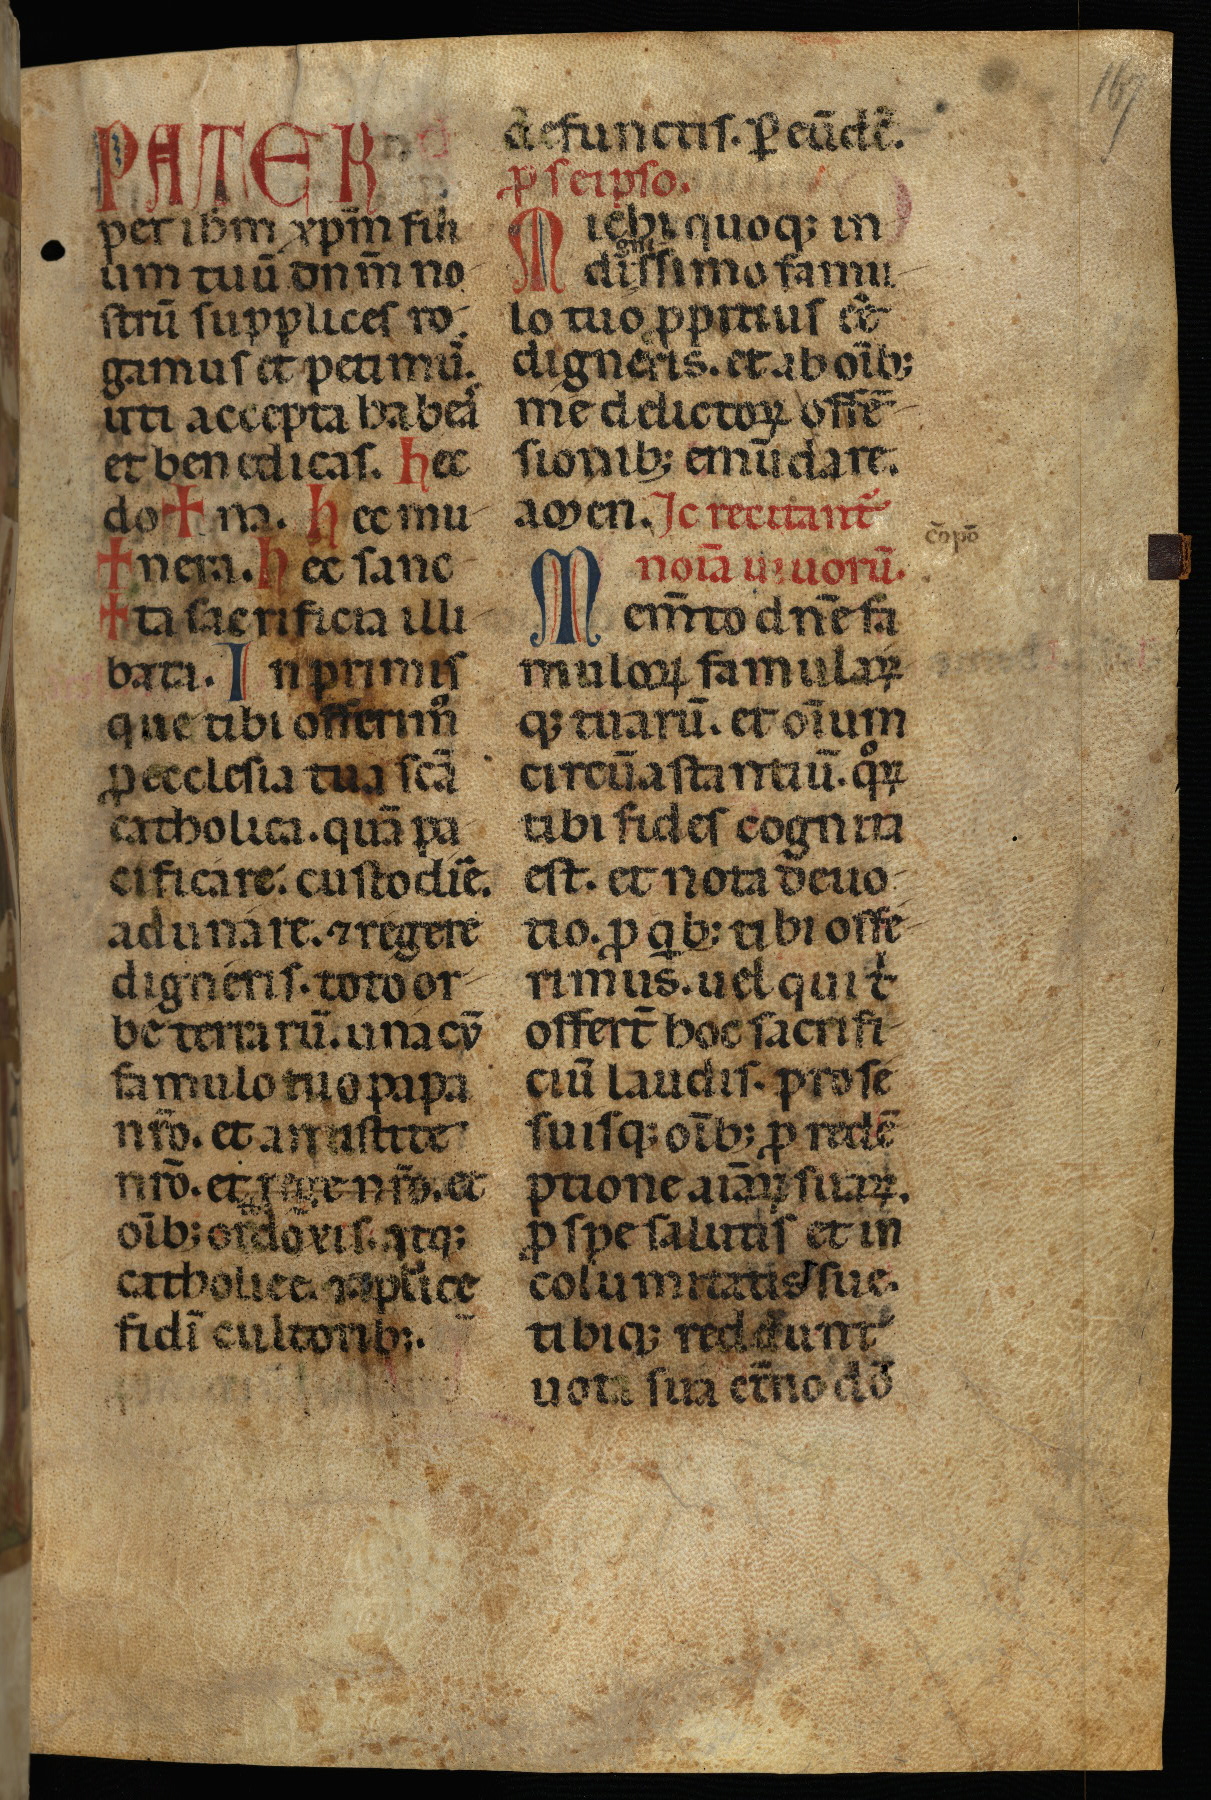 PATER
per ihm̄ xpm̄ fili
um tuū dnm̄ no
strū supplices ro
gamus et petimus̄.
uti accepta habeas̄
et benedicas. hec
do✝na. hec mu
✝nera. hec sanc
✝ta sacrificia illi
bata. In primis
que tibi offerimꝰ
ꝓ ecclesia tua scā
catholica. quā pa
cificare. custodir̄e.
adunare. ⁊ regere
digneris. toto or
be terrarū. una cū
famulo tuo papa
nr̄o. et antistite
nr̄o. et rege nr̄o. et
oīb; ortodoxis. atq;
catholice. ⁊ aplice
fidī cultorib;.
defunctis. ꝑ eūdē.
ꝓ seipso.
Michi quoq; in
dignissimo famu
lo tuo ꝓpitius eē
digneris. et ab oīb;
me delictoꝝ offē
sionib; emūdare.
amen. Ic recitant᷑
noīa uiuorū.
Mem̄to dnē fa
muloꝝ famulaꝝ
q; tuarū. et oīum
circūastantiū. qꝰꝝ
tibi fides cognita
est. et nota deuo
tio. ꝓ qib; tibi offe
rimus. uel qui t
offert̄ hoc sacrifi
ciū laudis. pro se
suisq; oīb; ꝓ redē
ptione aīaꝝ suaꝝ.
ꝓ spe salutis et in
columitatis sue.
tibiq; reddunt
uota sua et̄no dō
c̄opō
167